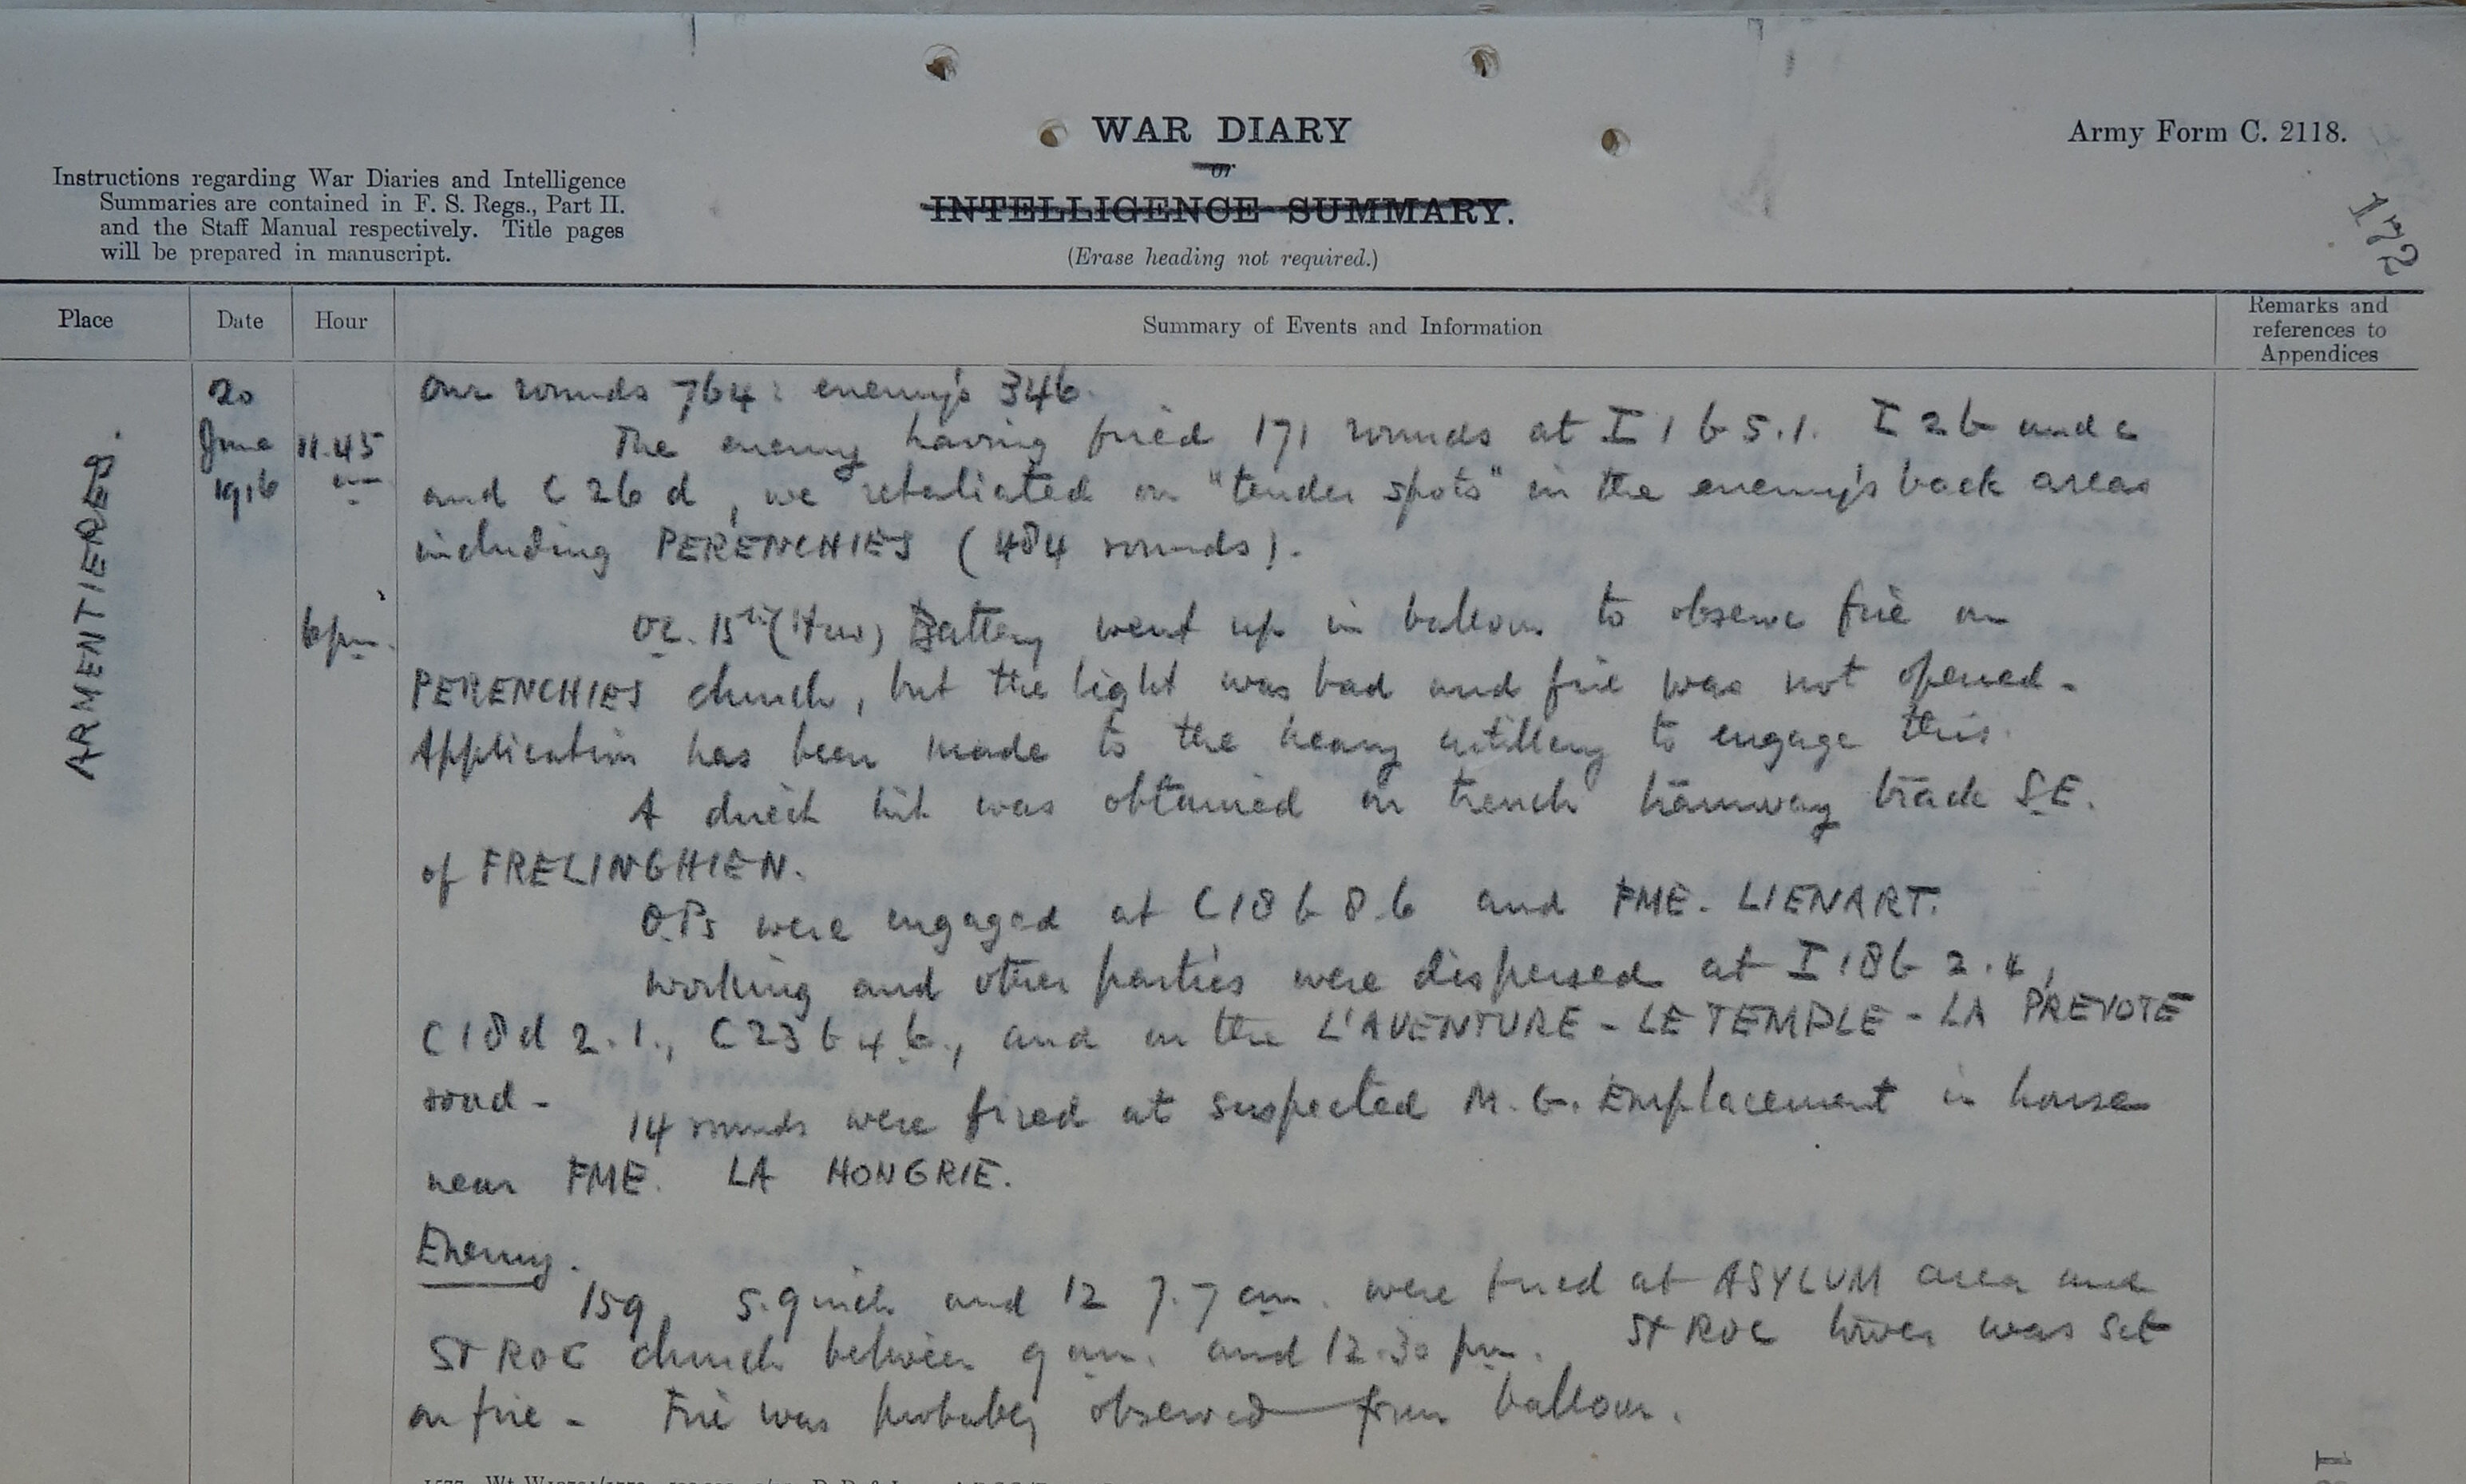 WAR DIARY
or
INTELLIGENCE SUMMARY.
(Erase heading not required.)
Army Form C. 2118.
172
Instructions regarding War Diaries and Intelligence
Summaries are contained in F. S. Regs., Part II.
and the Staff Manual respectively. Title pages
will be prepared in manuscript.
Place
Date
Hour
Summary of Events and Information
Remarks and
references to
Appendices
ARMENTIERES.
20
June
1916
11.45
am
6 pm.
Our rounds 764: enemy's 346.
The enemy having fired 171 rounds at I 1 b 5.1. I 2 b and c
and C 26 d, we retaliated on "tender spots" in the enemy's back areas
including PERENCHIES (484 rounds).
OC. 15th (How) Battery went up in balloon to observe fire on
PERENCHIES church, but the light was bad and fire was not opened -
Application has been made to the heavy artillery to engage this.
A direct hit was obtained on trench tramway track S.E.
of FRELINGHIEN.
O.Ps were engaged at C 18 b 8.6 and FME. LIENART.
Working and other parties were dispersed at I 18 b 2.4,
C 18 d 2.1., C 23 b 4.6., and on the L'AVENTURE - LE TEMPLE - LA PREVOTE
road -
14 rounds were fired at suspected M.G. Emplacement in house
near FME. LA HONGRIE.
Enemy.
159, 5.9 inch and 12 7.7 cm. were fired at ASYLUM area and
ST ROC church between 9 am. and 12.30 pm. ST ROC tower was set
on fire - Fire was probably observed from balloon.